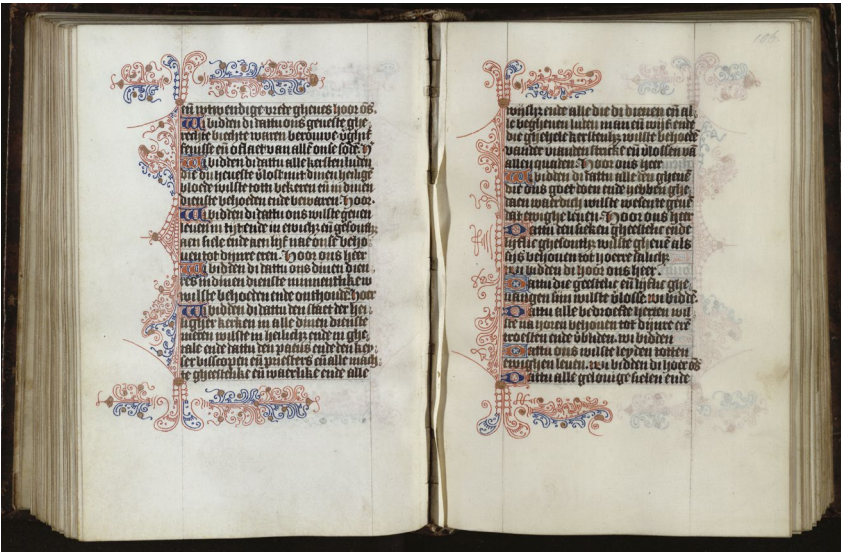 en wtwendige vrede gheues hoor ōs
Wi bidden di dattu ons gewese ghe
rechte biechte waren berouwe
ende oflaet van allē onse sōdē. h̄
Wi bidden di dattu alle kerstenluden
die du heueste v̄lost mit dinen heilige
bloede wilste totti bekeren en̄ in dinen
dienste behoeden ende bewaren. Hoor.
Wi bidden di dattu ons wilste geuen
leuen in tijt ende in ewich; en̄ gesont;
aen siele ende aen lijf na onse beho
uen tot dijnre eren. Hoor ons heer
Wi bidden di dattu ons dinen dien
res in dinen dienste
wilste behoeden ende onthoudē hoer
Wi bidden di dattu den staet der hei
ligher kerken in alle dinen dienste
meren wilste in heilich; ende in ghe
tale ende dattu den paeus ende den key
ser biscopen en̄ priesters en̄ alle mach
te gheestelike en̄ waerlike ende alle
106
wijslic ende alle die di dienen en̄ al
le begheuen luden man en̄ wijf ende
die gheheele kerstenh; wilste behoede
vander vianden stricke en̄ vlossen vā
allen quaden. Hoor ons heer
Wi bidden di dattu allen den gheuē
die ons goet doen ende hebben ghe
daen waerdich wilste wesen te geuē
dat ewighe leuen. Hoor ons heer
Dattu den sieken gheestelike ende
lijflic ghesonth; wilste gheuē als
hijs behouen tot hoere salich;
wi bidden di hoor ons heer.
Dattu die geestelic en̄ lijflic ghe
uangen sijn wilste vlosse. wi biddē
Dattu alle bedroefde herten wil
ste na horen behouen tot dijnre ere
troesten ende vbliden. wi bidden
Dattu ons wilste leyden totten
ewighen leuen. wi bidden di hoor ōs
Dattu alle gelouige sielen ende